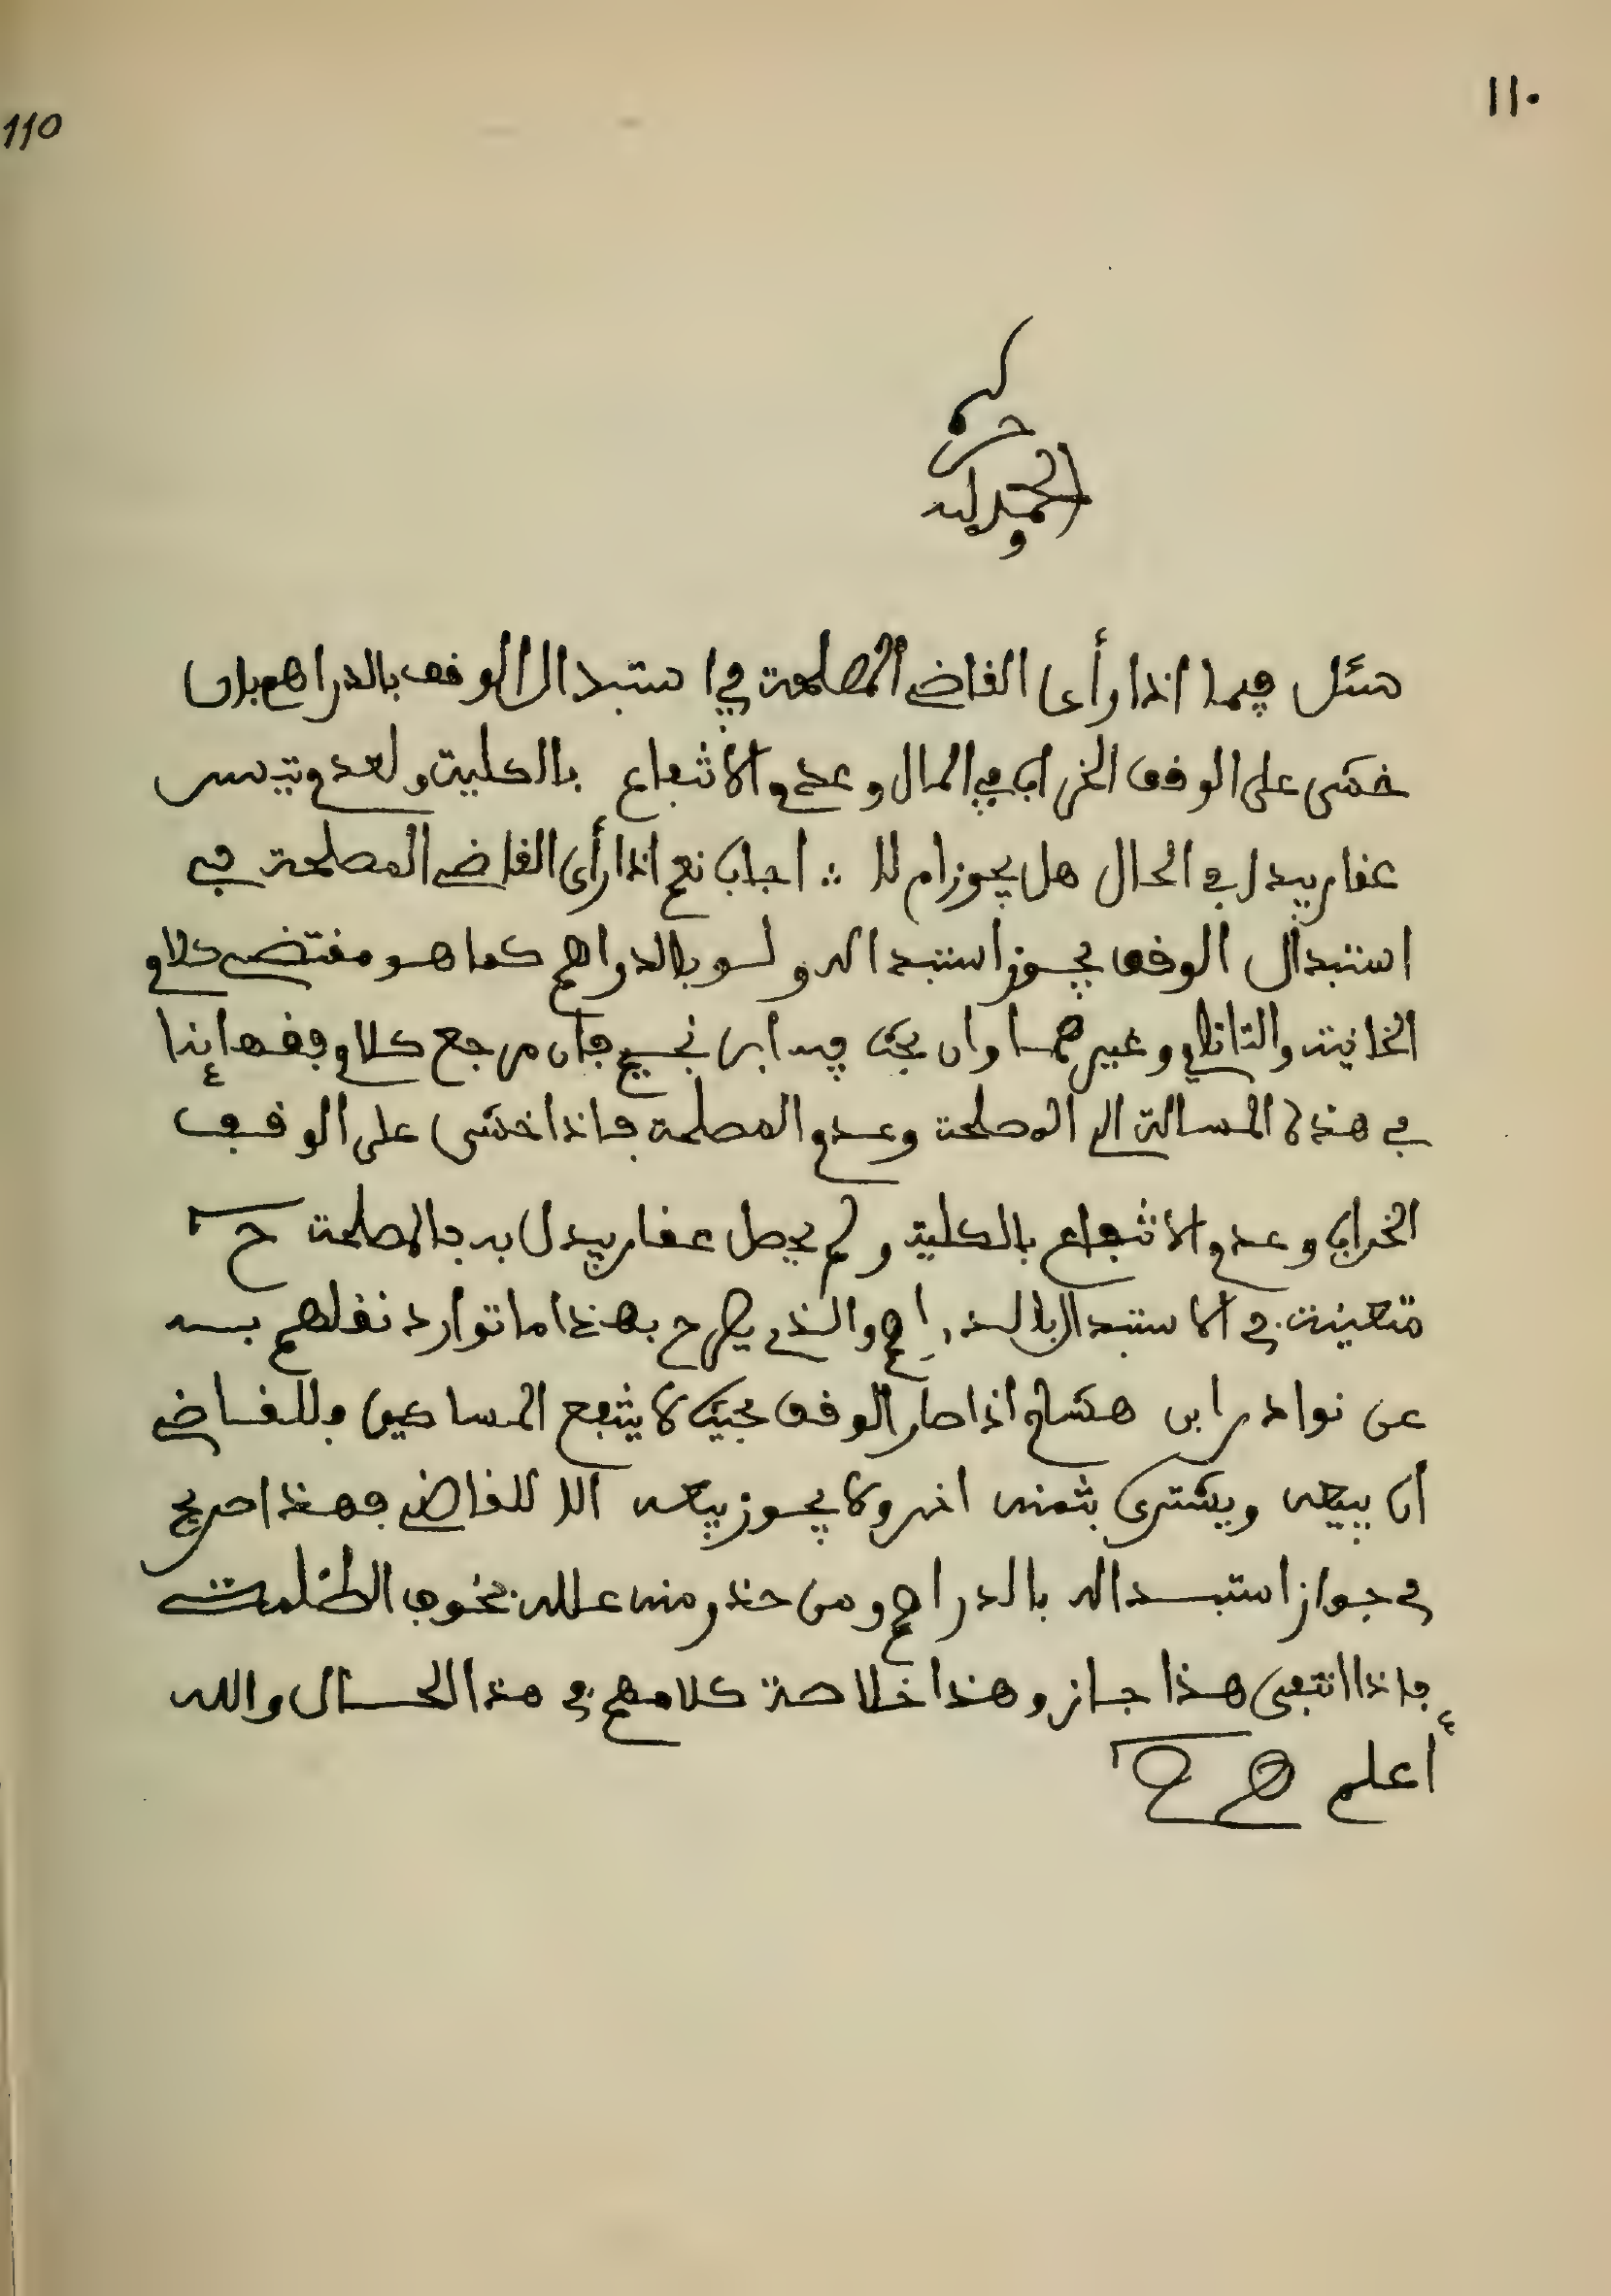 ١١٠
110
الحمد لله
سئل فيما اذا رأى القاضي المصلحة في استبدال الوقف بالدراهم بان
خشى على الوقف الخراب في المال وعدم الانتفاع بالكلية ولعدم تيسر
عقار يبدل في الحال هل يجوز ام لا ∴ اجاب نعم اذا رأى القاضي المصلحة في
استبدال الوقف يجوز استبداله ولو بالدراهم كما هو مقتضى كلام
الخانية والتاتار وغيرهما وان بحث فيه ابن نجيم فان مرجع كلام فقهائنا
في هذه المسالة الى المصلحة وعدم المصلحة فاذا خشى على الوقف
الخراب وعدم الانتفاع بالكلية ولم يحصل عقار يبدل به فالمصلحة ح
متعينة في الاستبدال بالدراهم والذي يصرح بهذا ما توارد نقلهم به
عن نوادر ابن هشام اذا صار الوقف بحيث لا ينتفع المساكين فللقاضي
ان يبيعه ويشترى بثمنه اخر ولا يجوز بيعه الا للقاضي فهذا صريح
في جواز استبداله بالدراهم ومن حذر منه علله بخوف الظلمة
فاذا انتفى هذا جاز وهذا خلاصة كلامهم في هذا الحال والله
أعلم